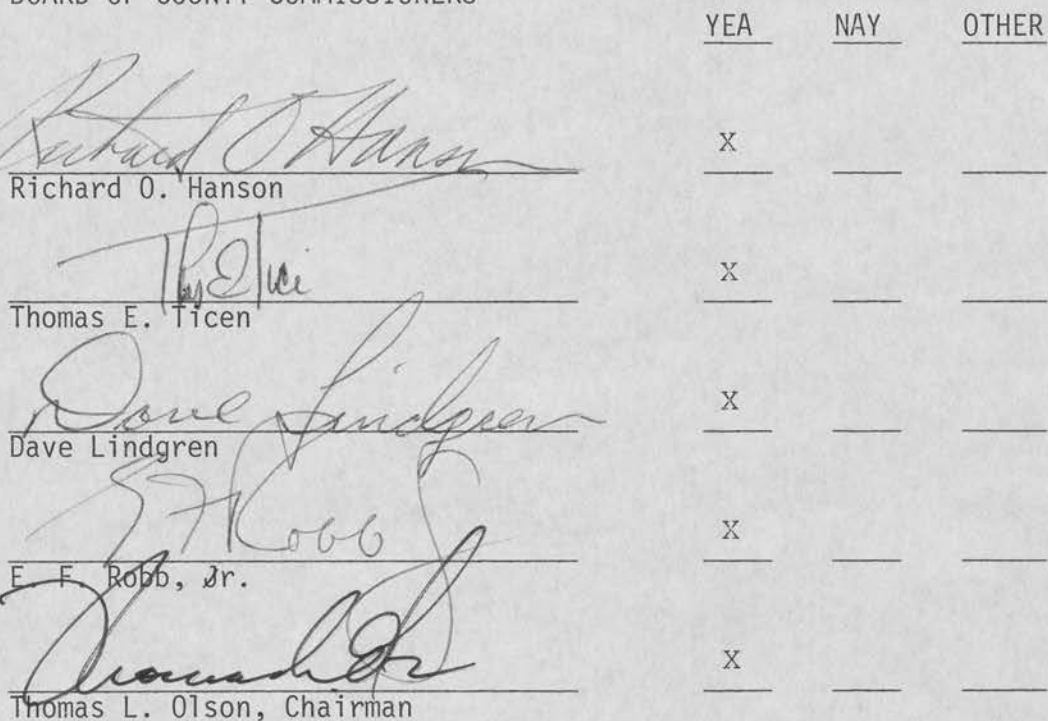 BOARD OF COUNTY COMMISSIONERS
YEA NAY OTHER
Richard O Hanson X
Richard O. Hanson
Thos E Tice X
Thomas E. Ticen
Dave Lindgren X
Dave Lindgren
E F Robb Jr X
E. F. Robb, Jr.
X
Thomas L. Olson, Chairman